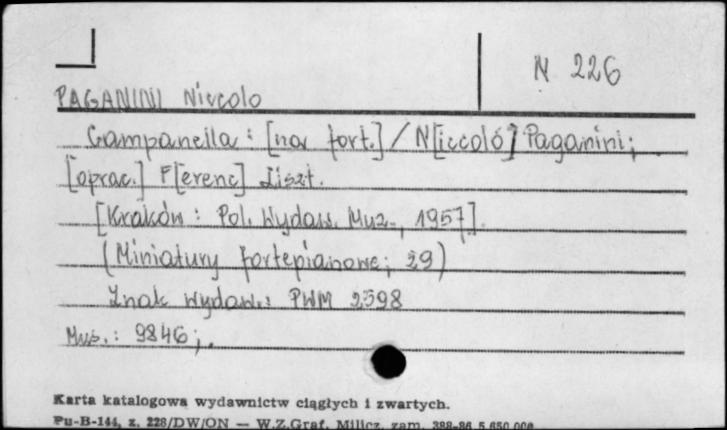 N 226
PAGANINI Niccolo
Campanella : [na fort.] / N[iccoló] Paganini ;
[oprac.] F[erenc] Liszt.
[Kraków : Pol. Wydaw. Muz., 1957].
(Miniatury fortepianowe ; 29)
Znak wydaw.: PWM 2398
Mus.: 9846 ; .
Karta katalogowa wydawnictw ciągłych i zwartych.
Pu-B-144, z. 228/DW/ON — W.Z.Graf. Milicz, zam. 388-86 5.650.000